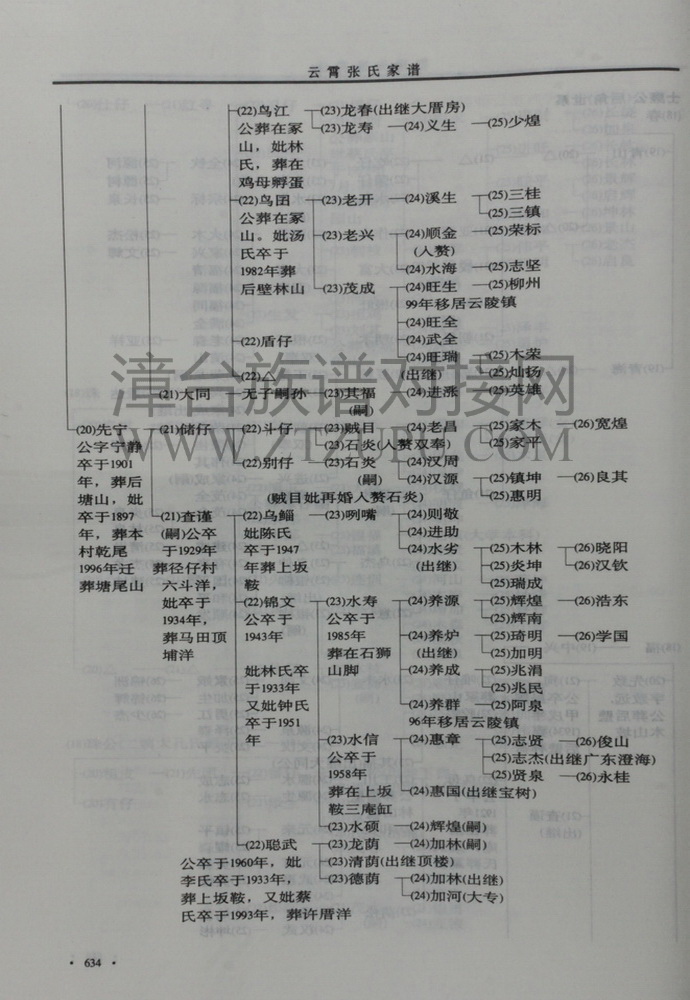 云霄张氏家谱
(22)鸟江 (23)龙春(出继大厝房)
公葬在冢 (23)龙寿 (24)义生 (25)少煌
山，妣林
氏，葬在
鸡母孵蛋
(22)鸟团 (23)老开 (24)溪生 (25)三桂
公葬在冢 (25)三镇
山。妣汤 (23)老兴 (24)顺金 (25)荣标
氏卒于 (入赘)
1982年葬 (24)水海 (25)志坚
后壁林山 (23)茂成 (24)旺生 (25)柳州
99年移居云陵镇
(24)旺全
(22)盾仔 (24)武全
(24)旺瑞 (25)木荣
(22)△ (出继) (25)灿扬
(21)大同 无子嗣孙 (23)其福 (24)进涨 (25)英雄
(嗣)
(20)先宁 (21)储仔 (22)斗仔 (23)贼目 (24)老昌 (25)家木 (26)宽煌
公字宁静 (23)石炎(入赘双奉) (25)家平
卒于1901 (22)别仔 (23)石炎 (24)汉周
年，葬后 (嗣) (24)汉源 (25)镇坤 (26)良其
塘山，妣 (贼目妣再婚入赘石炎) (25)惠明
卒于1897 (21)查谨 (22)乌鲻 (23)咧嘴 (24)则敬
年，葬本 (嗣)公卒 妣陈氏 (24)进助
村乾尾 于1929年 卒于1947 (24)水劣 (25)木林 (26)晓阳
1996年迁 葬径仔村 年葬上坂 (出继) (25)炎坤 (26)汉钦
葬塘尾山 六斗洋， 鞍 (25)瑞成
妣卒于 (22)锦文 (23)水寿 (24)养源 (25)辉煌 (26)浩东
1934年， 公卒于 公卒于 (25)辉南
葬马田顶 1943年 1985年 (24)养炉 (25)琦明 (26)学国
埔洋 葬在石狮 (出继) (25)加明
妣林氏卒 山脚 (24)养成 (25)兆涓
于1933年 (25)兆民
又妣钟氏 (24)养群 (25)阿泉
卒于1951 96年移居云陵镇
年 (23)水信 (24)惠章 (25)志贤 (26)俊山
公卒于 (25)志杰(出继广东澄海)
1958年 (25)贤泉 (26)永桂
葬在上坂 (24)惠国(出继宝树)
鞍三庵缸
(23)水硕 (24)辉煌(嗣)
(22)聪武 (23)龙荫 (24)加林(嗣)
公卒于1960年，妣 (23)清荫(出继顶楼)
李氏卒于1933年， (23)德荫 (24)加林(出继)
葬上坂鞍，又妣蔡 (24)加河(大专)
氏卒于1993年，葬许厝洋
漳台族谱对接网
WWW.ZTZUPU.COM
· 634 ·